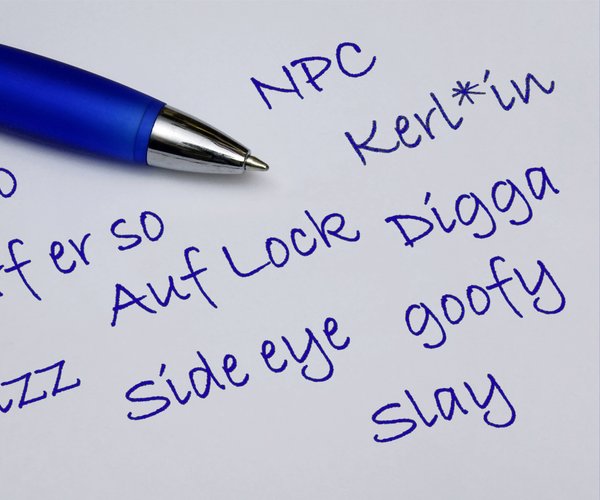 NPC
Kerl*in
Digga
er so
Auf Lock
goofy
Side eye
Slay